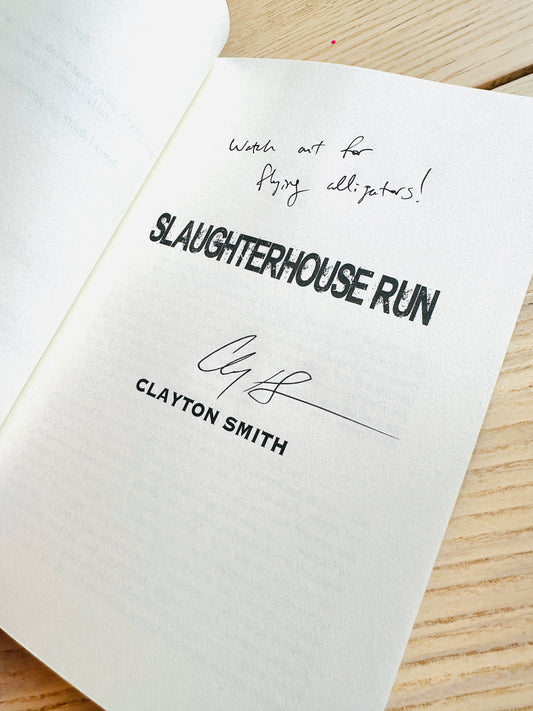 Watch out for
flying alligators!
SLAUGHTERHOUSE RUN
CLAYTON SMITH